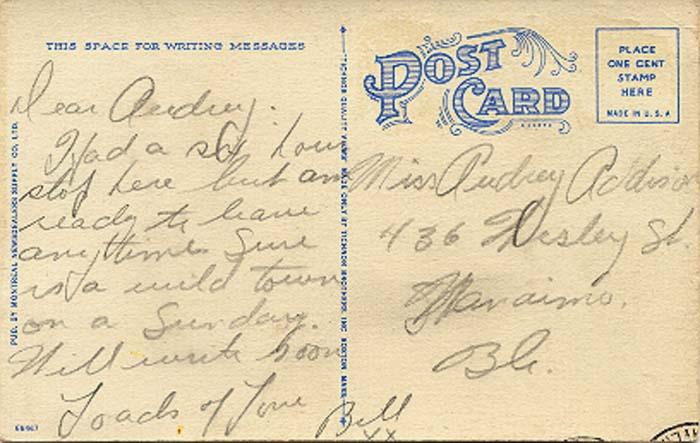 THIS SPACE FOR WRITING MESSAGES
POST CARD
PLACE
ONE CENT
STAMP
HERE
MADE IN U.S.A
Dear Audrey.
Had a six hour
stop here but am
ready to leave
anytime. Sure
is a wild town
on a Sunday.
Will write soon
Loads of Love
Bill
XX
Miss Audrey Addison
436 Wesley St.
Nanaimo.
B.C.
PUB. BY MONTREAL NEWSDEALERS SUPPLY CO. LTD.
"TICHNOR QUALITY VIEWS" MADE ONLY BY TICHNOR BROTHERS, INC. BOSTON, MASS.